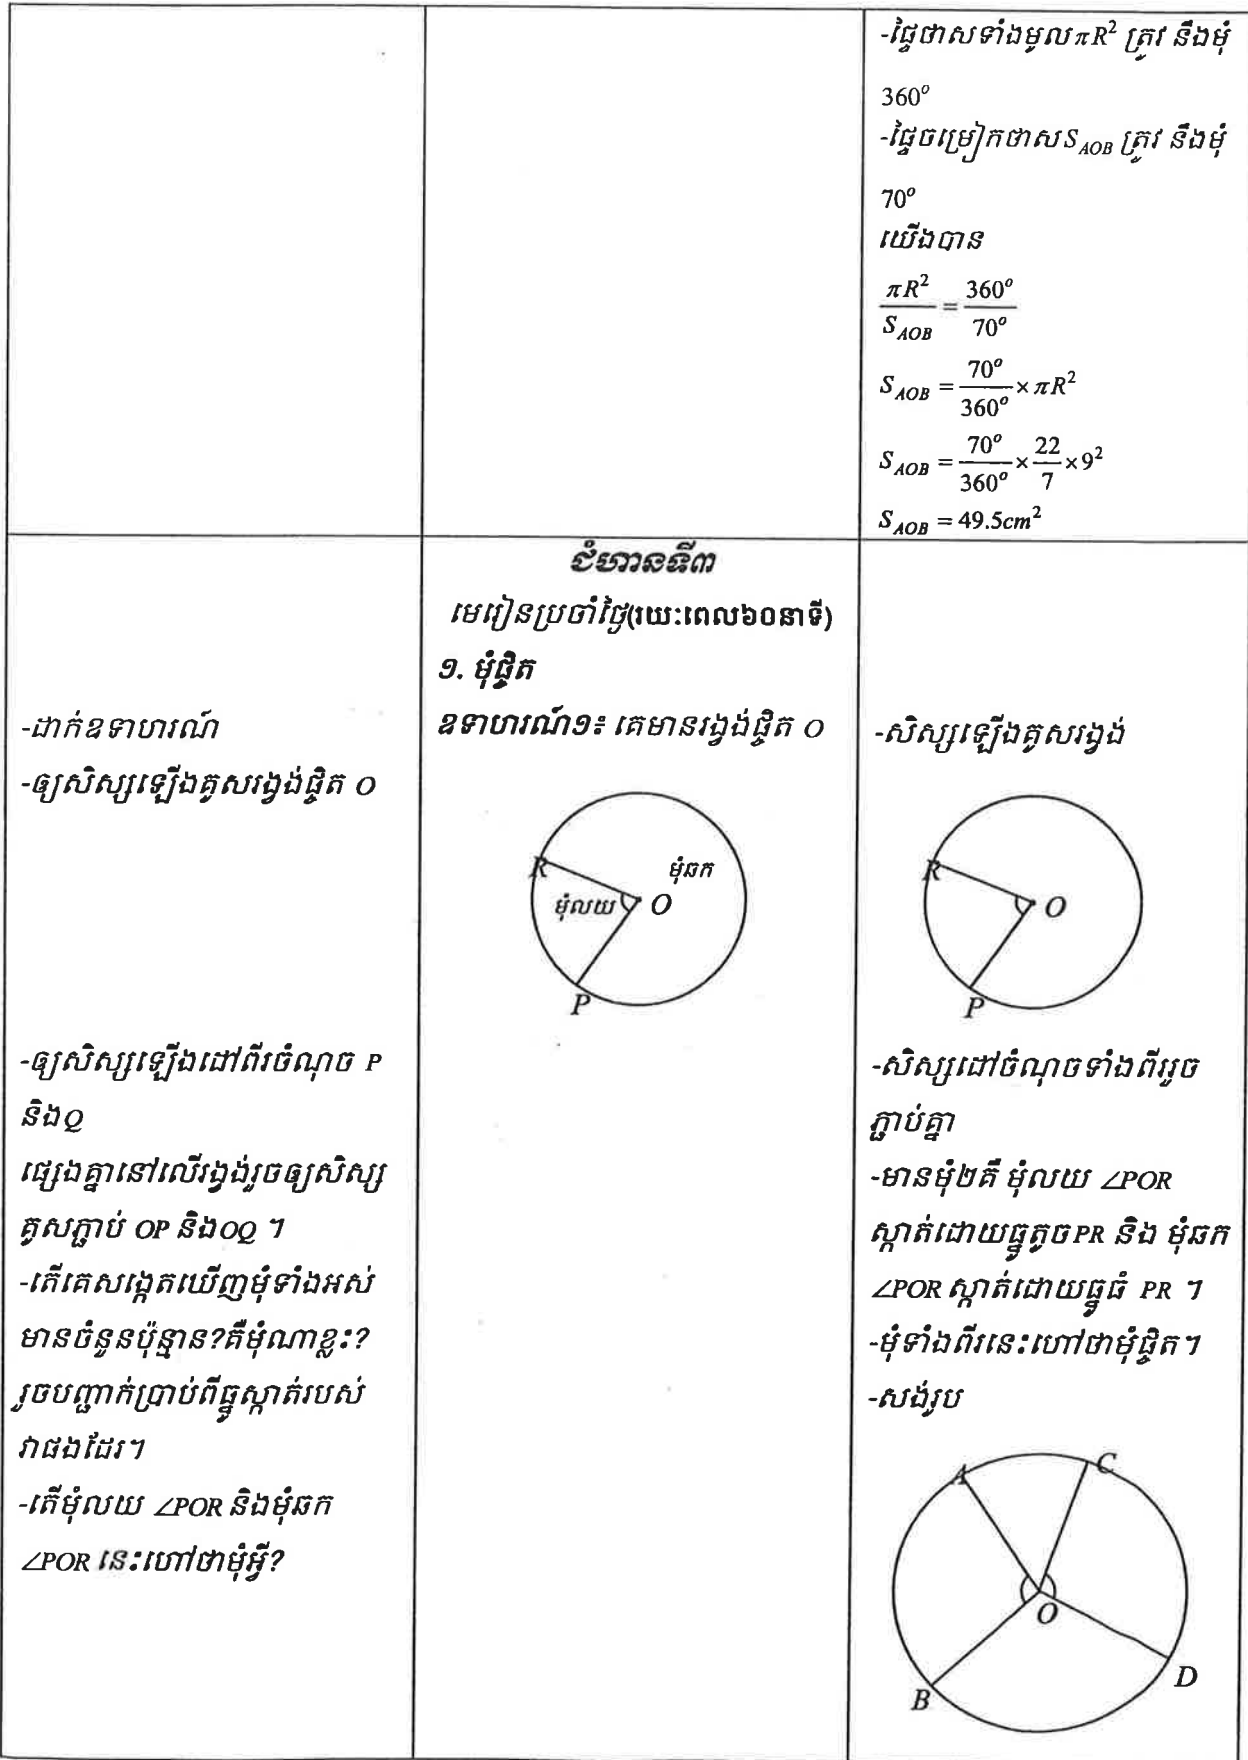 -ផ្ទៃថាសទាំងមូលπR² ត្រូវ នឹងមុំ
360°
-ផ្ទៃចម្រៀកថាសS_AOB ត្រូវ នឹងមុំ
70°
យើងបាន
πR²/S_AOB = 360°/70°
S_AOB = 70°/360° × πR²
S_AOB = 70°/360° × 22/7 × 9²
S_AOB = 49.5cm²
-ដាក់ឧទាហរណ៍
-ឲ្យសិស្សឡើងគូសរង្វង់ផ្ចិត O
-ឲ្យសិស្សឡើងដៅពីរចំណុច P
និងQ
ផ្សេងគ្នានៅលើរង្វង់រួចឲ្យសិស្ស
គូសភ្ជាប់ OP និងOQ ។
-តើគេសង្កេតឃើញមុំទាំងអស់
មានចំនួនប៉ុន្មាន?គឺមុំណាខ្លះ?
រួចបញ្ជាក់ប្រាប់ពីធ្នូស្កាត់របស់
វាផងដែរ។
-តើមុំលយ ∠POR និងមុំឆក
∠POR នេះហៅថាមុំអ្វី?
ជំហានទី៣
មេរៀនប្រចាំថ្ងៃ(រយៈពេល៦០នាទី)
១. មុំផ្ចិត
ឧទាហរណ៍១៖ គេមានរង្វង់ផ្ចិត O
R
មុំឆក
មុំលយ
O
P
-សិស្សឡើងគូសរង្វង់
R
O
P
-សិស្សដៅចំណុចទាំងពីររួច
ភ្ជាប់គ្នា
-មានមុំ២គឺ មុំលយ ∠POR
ស្កាត់ដោយធ្នូតូចPR និង មុំឆក
∠POR ស្កាត់ដោយធ្នូធំ PR ។
-មុំទាំងពីរនេះហៅថាមុំផ្ចិត។
-សង់រូប
A
C
O
B
D